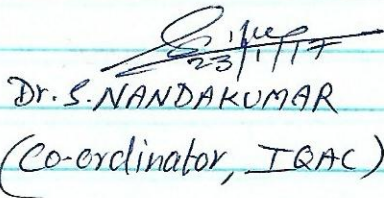 23/1/17
Dr. S. NANDAKUMAR
(Co-ordinator, IQAC)